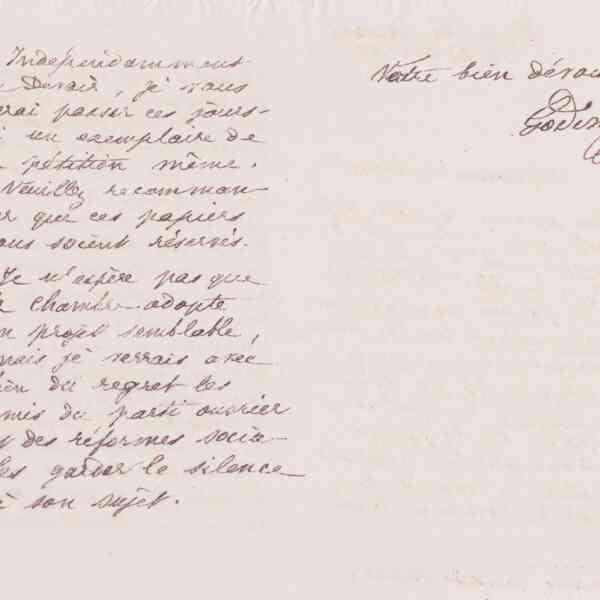 Indépendamment
Devoir, je vous
erai passer ces jours-
i un exemplaire de
pétition même.
Veuillez recomman-
er que ces papiers
ous soient réservés.
Je n'espère pas que
chambre adopte
n projet semblable,
mais je verrais avec
ien du regret les
mis du parti ouvrier
des réformes socia-
les garder le silence
à son sujet.
Votre bien dévou
Godin